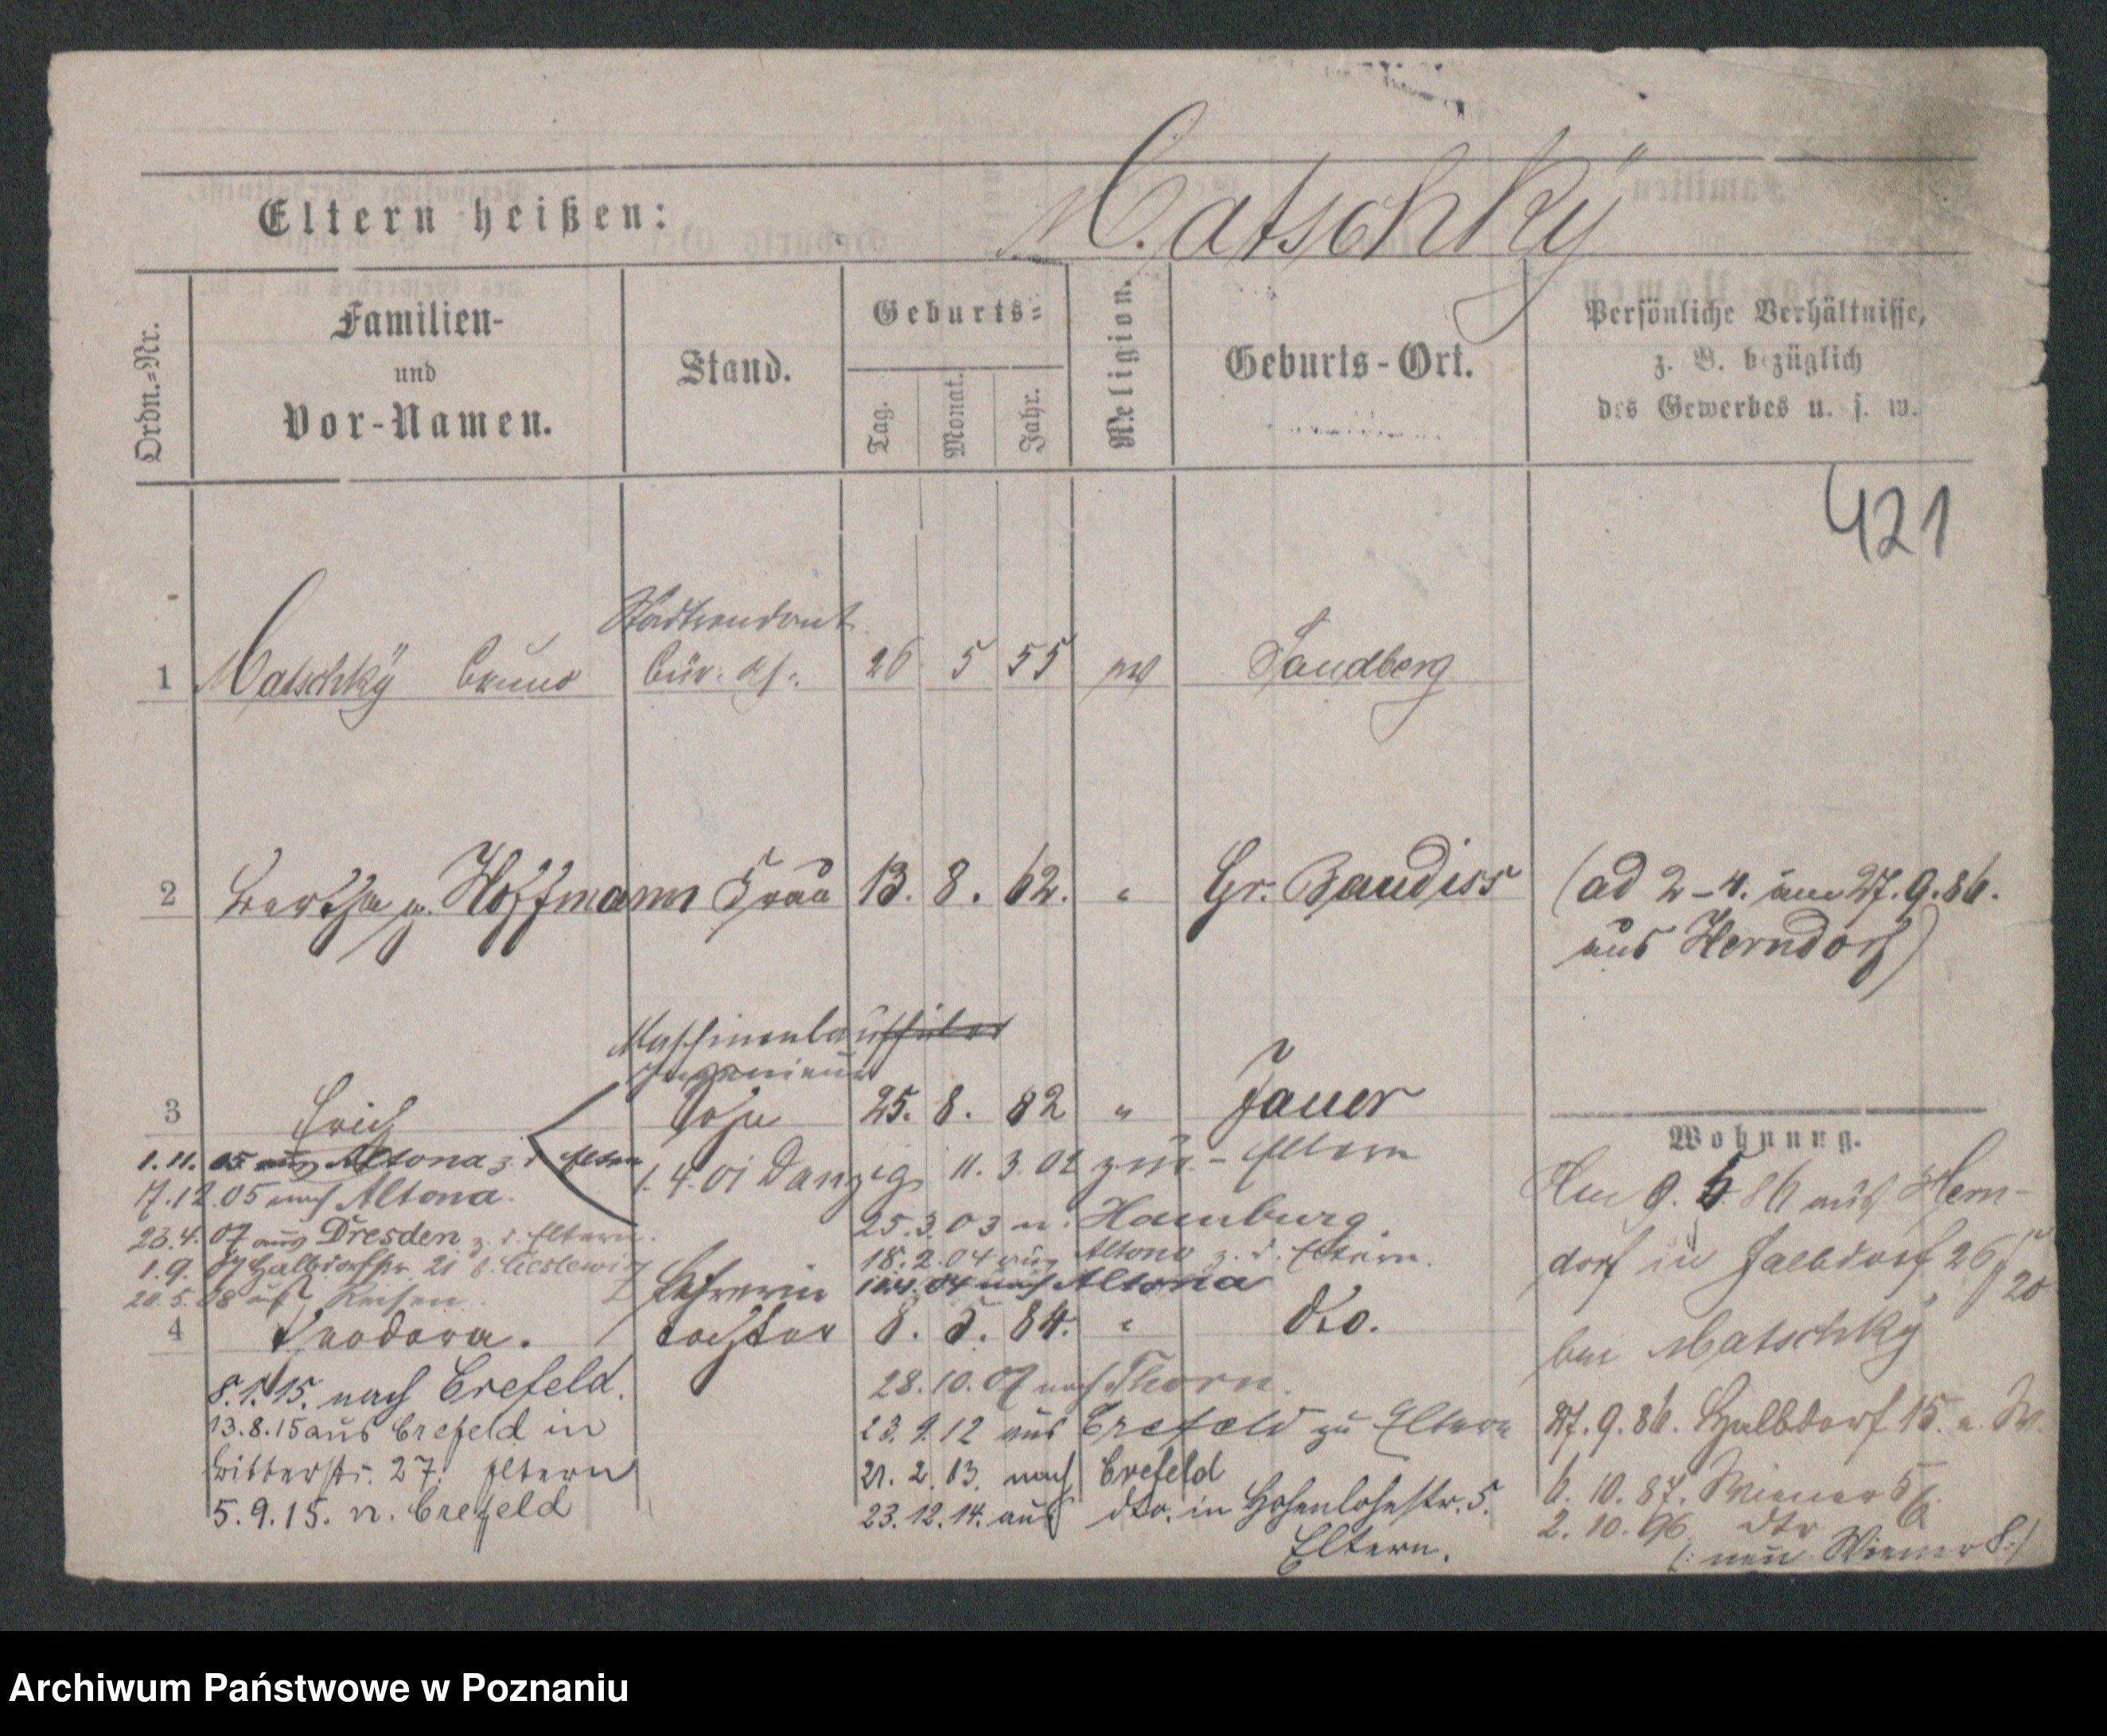 Matschkÿ
Eltern heißen:
Ordn.=Nr.
Familien-
und
Vor-Namen.
Stand.
Geburts=
Tag.
Monat.
Jahr.
Religion.
Geburts-Ort.
Persönliche Verhältnisse,
z. B. bezüglich
des Gewerbes u. s. w.
421
Stadtrendant
1 Matschkÿ Bruno Bür. 26 5 55 Sandberg
2 Bertha g. Hoffmann Frau 13. 8. 62. " Gr. Baudiss
(ad 2-4. am 27. 9. 86.
aus Herndorf)
Maschinenbau
Ingenieur
3 Erich Sohn 25. 8. 82 " Jauer
1. 11. 05 aus Altona z. d. Eltern
1. 4. 01 Danzig 11. 3. 02 zur- Eltern
17. 12. 05 nach Altona.
25. 3. 03 n. Hamburg.
23. 4. 07 aus Dresden z. d. Eltern.
18. 2. 04 aus Altona z. d. Eltern.
1. 9. 07 Halbdorfstr. 21
nach Altona
20. 5. 08 auf Reisen.
Lehrerin
4 Teodora. Tochter 8. 5. 84. " dto.
8. 1. 15. nach Crefeld.
28. 10. 07 nach Thorn.
13. 8. 15 aus Crefeld in
23. 9. 12 aus Crefeld zu Eltern
Ritterstr. 27. Eltern
21. 2. 13. nach Crefeld
5. 9. 15. n. Crefeld
23. 12. 14. aus dto. in Hohenlohestr. 5.
Eltern.
Wohnung.
Am 9. 86 aus Hern-
dorf in Halbdorf 26
20
bei Matschkÿ
27. 9. 86. Halbdorf 15.
6. 10. 87. Wiener 5/6.
2. 10. 96. dto
(: neu Wiener 8 :)
Archiwum Państwowe w Poznaniu